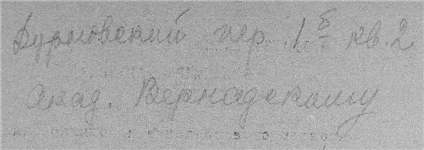 Дурновский пер. 1б кв. 2
Акад. Вернадскому